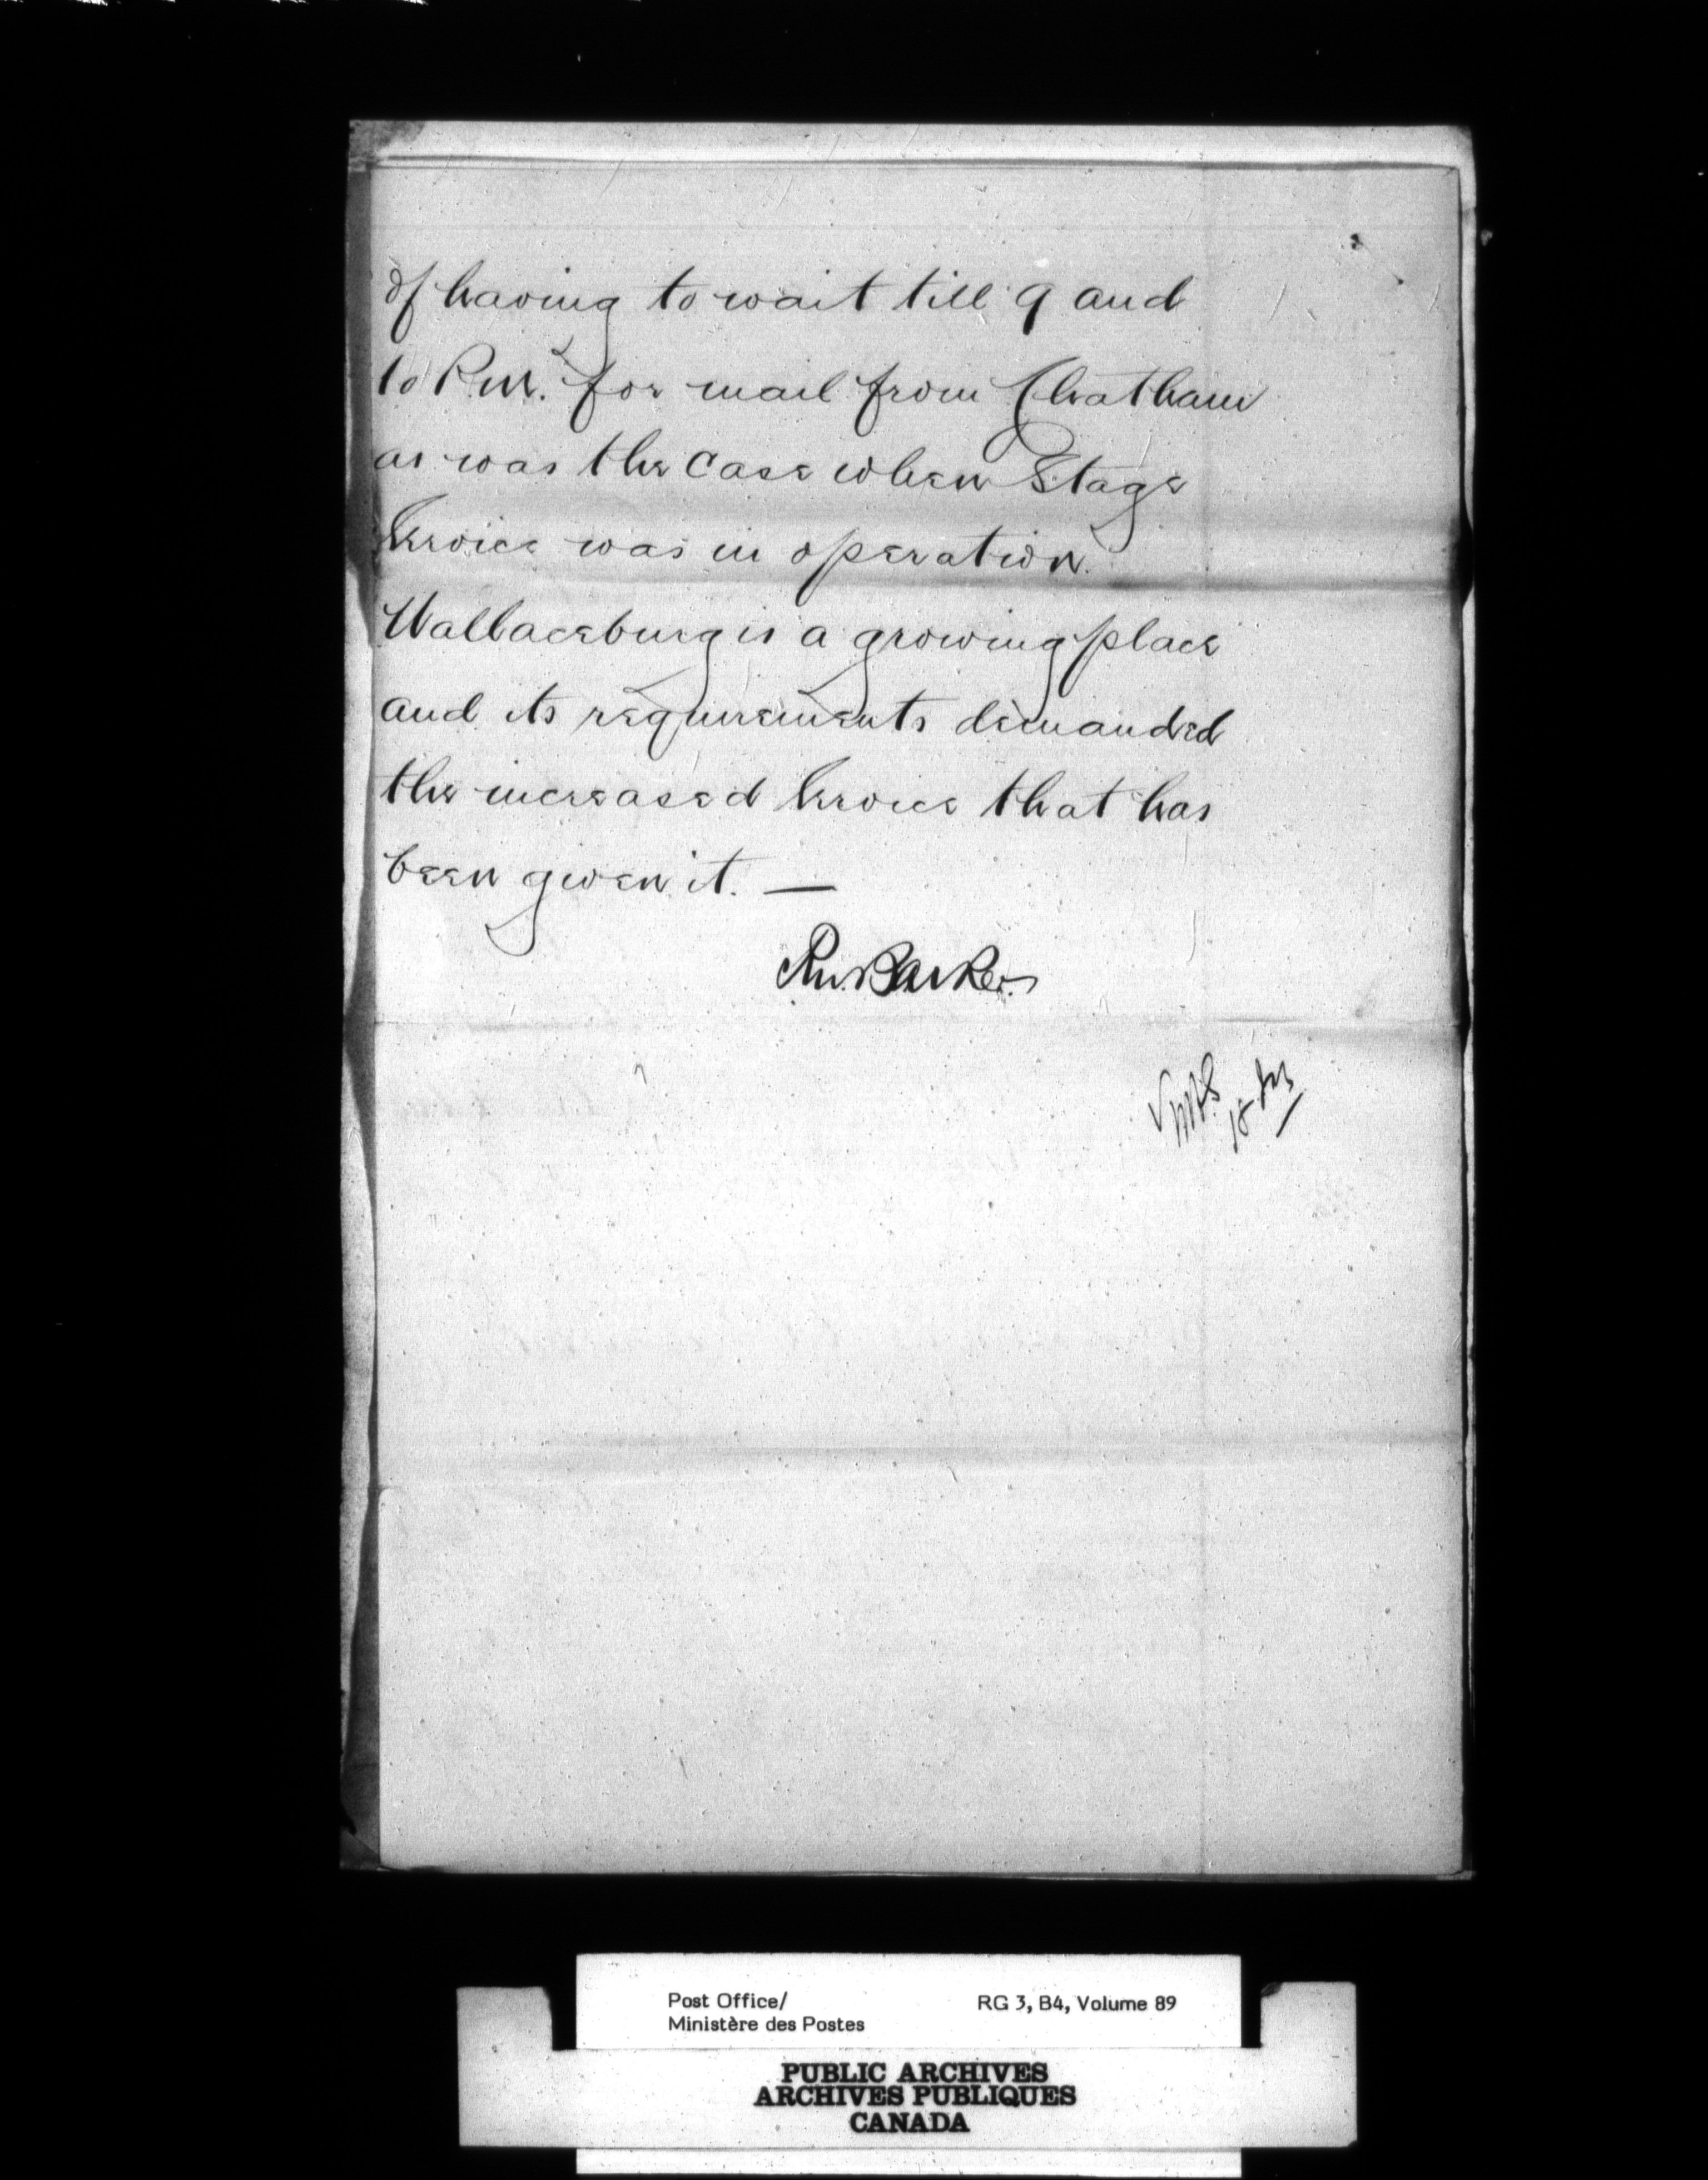 of having to wait till 9 and
10 P.M. for mail from Chatham
as was the case when Stage
Service was in operation.
Wallaceburg is a growing place
and its requirements demanded
the increased Service that has
been given it. —
RW. Barker
18
Post Office/
Ministère des Postes
RG 3, B4, Volume 89
PUBLIC ARCHIVES
ARCHIVES PUBLIQUES
CANADA